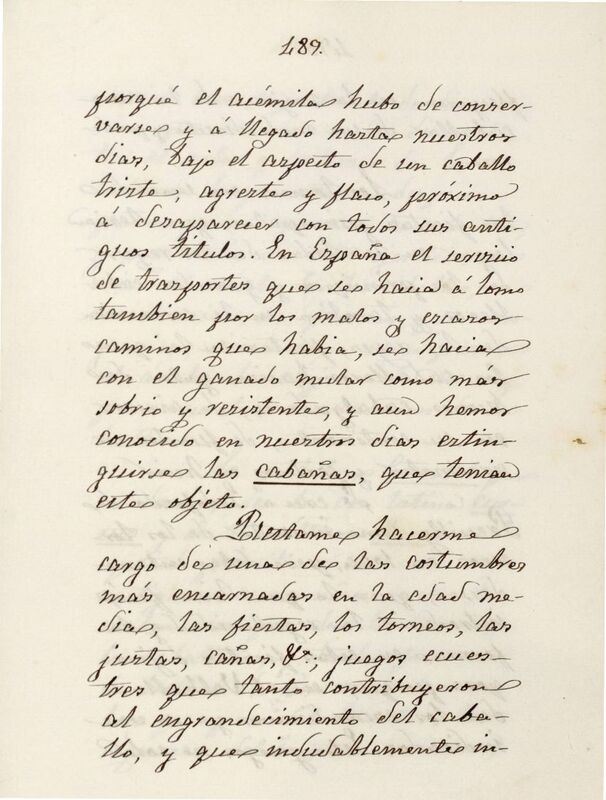 189.
porqué el acémila hubo de conser-
varse y á llegado hasta nuestros
dias, bajo el aspecto de un caballo
triste, agreste y flaco, próximo
á desaparecer con todos sus anti-
guos titulos. En España el servicio
de trasportes que se hacia á lomo
tambien por los malos y escasos
caminos que habia, se hacia
con el ganado mular como más
sobrio y resistente, y aun hemos
conocido en nuestros dias estin-
guirse las cabañas, que tenian
este objeto.
Restame hacerme
cargo de una de las costumbres
más encarnadas en la edad me-
dia, las fiestas, los torneos, las
justas, cañas, &a; juegos ecues-
tres que tanto contribuyeron
al engrandecimiento del caba-
llo, y que indudablemente in-